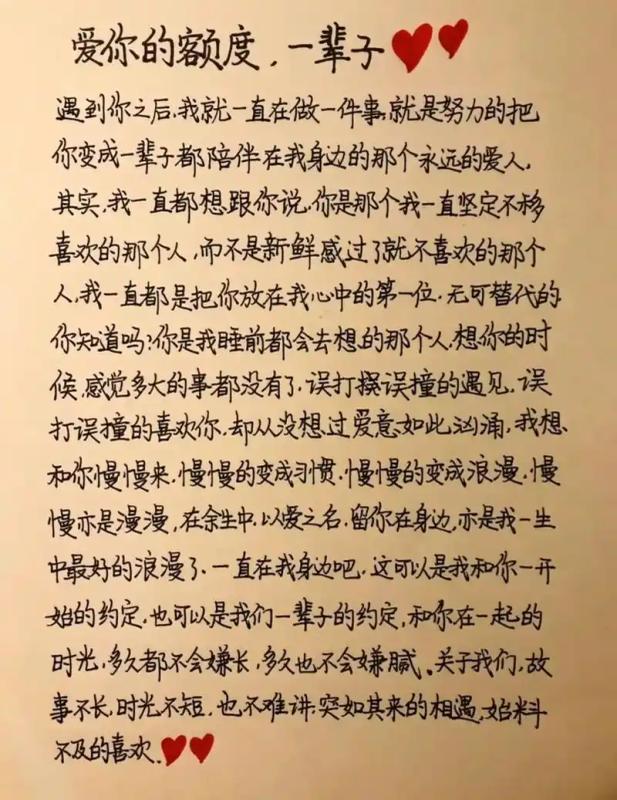 爱你的额度，一辈子
遇到你之后，我就一直在做一件事，就是努力的把
你变成一辈子都陪伴在我身边的那个永远的爱人，
其实，我一直都想跟你说，你是那个我一直坚定不移
喜欢的那个人，而不是新鲜感过了就不喜欢的那个
人，我一直都是把你放在我心中的第一位，无可替代的
你知道吗？你是我睡前都会去想的那个人，想你的时
候，感觉多大的事都没有了，误打误撞的遇见，误
打误撞的喜欢你，却从没想过爱意如此汹涌，我想
和你慢慢来，慢慢的变成习惯，慢慢的变成浪漫，慢
慢亦是漫漫，在余生中，以爱之名，留你在身边，亦是我一生
中最好的浪漫了，一直在我身边吧，这可以是我和你一开
始的约定，也可以是我们一辈子的约定，和你在一起的
时光，多久都不会嫌长，多久也不会嫌腻。关于我们，故
事不长，时光不短，也不难讲，突如其来的相遇，始料
不及的喜欢。